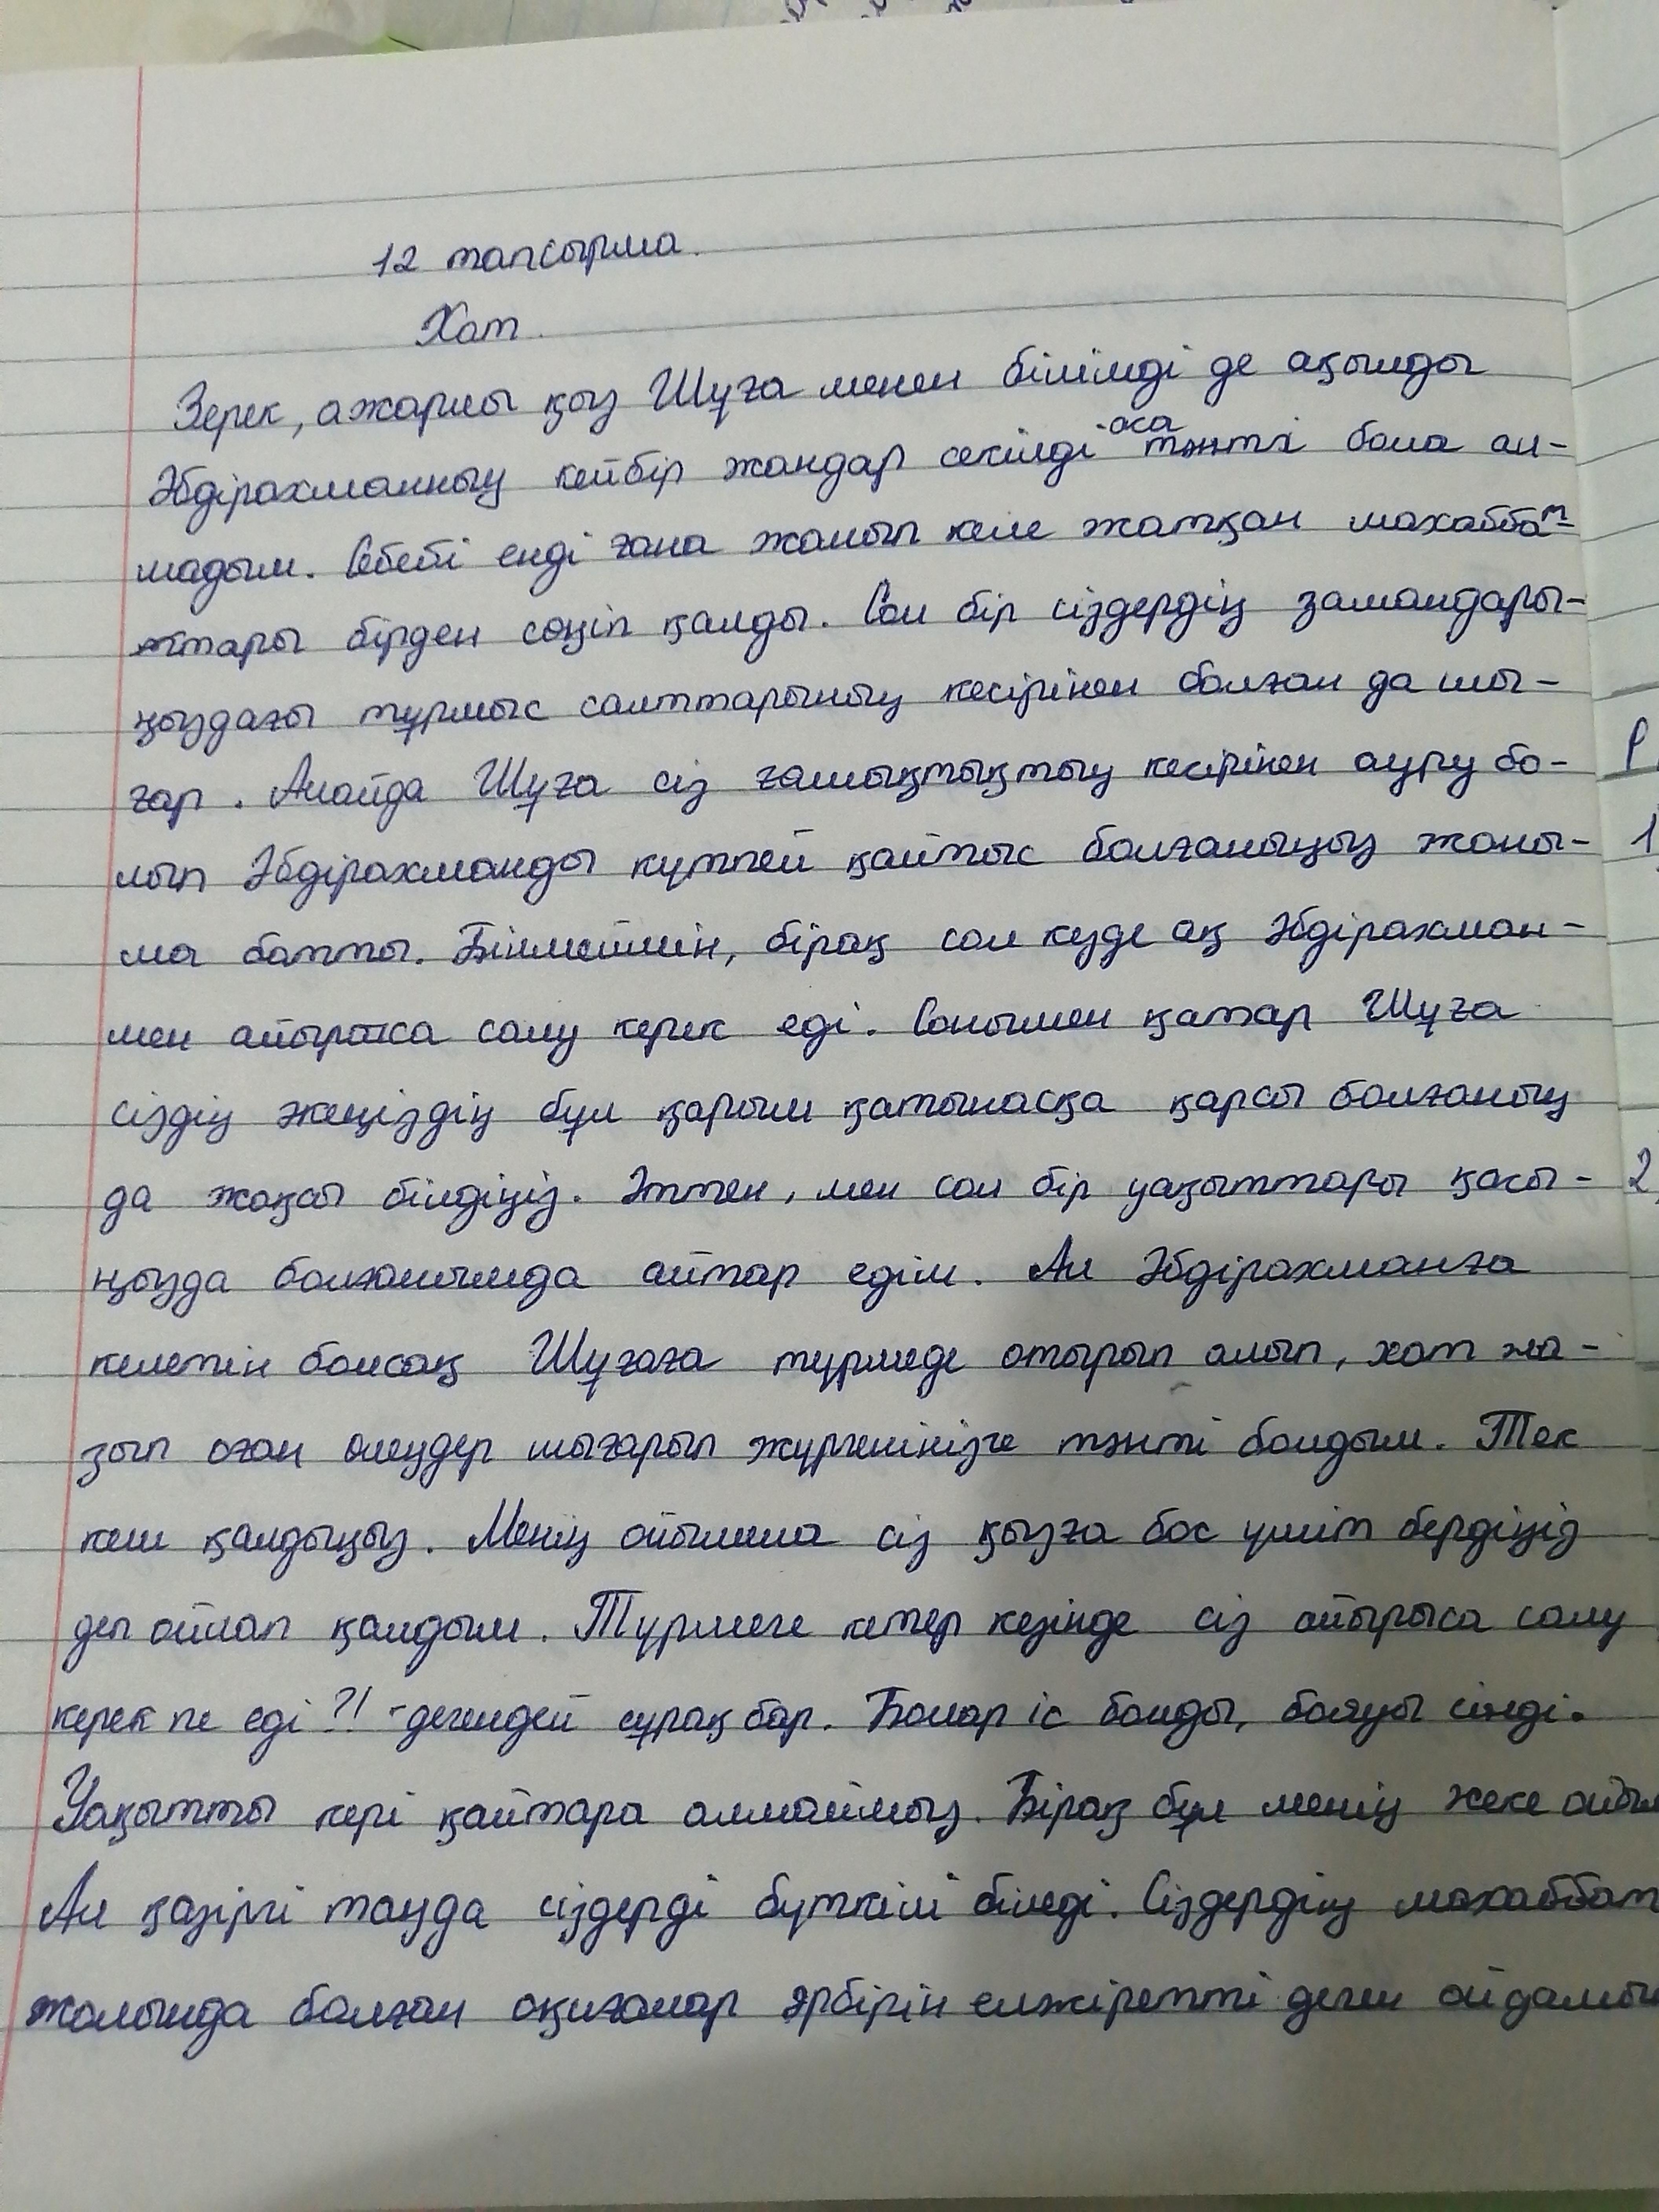 12 тапсырма.
Хат.
Зерек, ажарлы қыз Шұға менен білімді де ақылды
Әбдірахманның кейбір жандар секілді аса тәнті бола ал-
мадым. Себебі енді ғана жанып келе жатқан махаббат-
ттары бірден сөніп қалды. Сол бір сіздердің замандары-
ңыздағы тұрмыс салттарының кесірінен болған да шы-
ғар. Алайда Шұға сіз ғашықтықтың кесірінен ауру бо-
лып Әбдірахманды күтпей қайтыс болғаныңыз жаны-
ма батты. Білмеймін, бірақ сол кезде ақ Әбдірахман-
мен айыраса салу керек еді. Сонымен қатар Шұға
сіздің жеңіздің бұл қарым қатынасқа қарсы болғаның
да жақсы білдіңіз. Әттен, мен сол бір уақыттары қасы-
ңызда болғанымда айтар едім. Ал Әбдірахманға
келетін болсақ Шұғаға түрмеде отырып алып, хат жа-
зып оған өлеңдер шығарып жүргенінізге тәнті болдым. Тек
кеш қалдыңыз. Менің ойымша сіз қызға бос үміт бердіңіз
деп ойлап қалдым. Түрмеге кетер кезінде сіз айырыса салу
керек пе еді?! -дегендей сұрақ бар. Болар іс болды, бояуы сіңді.
Уақытты кері қайтара алмаймыз. Бірақ бұл менің жеке ойым
Ал қазіргі таңда сіздерді бүткіл біледі. Сіздердің махаббат
жолында болған оқиғалар әрбірін елжіретті деген ойдамын
Р
1
2